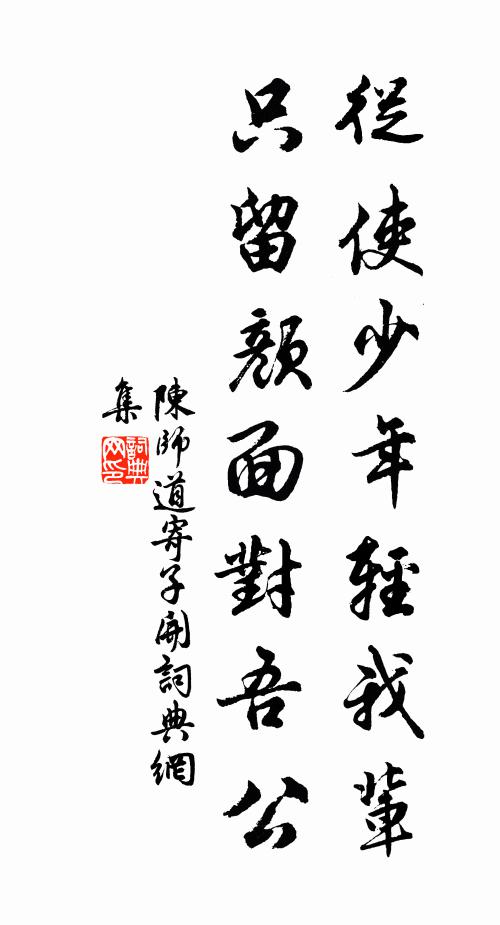 從使少年輕我輩
只留顏面對吾公
陳師道寄子開詞典網
集
詞典
网印